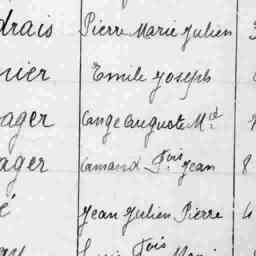 drais Pierre Marie Julien
nier Emile Joseph
ager Ange Auguste M.ie
ager Armand F.ois Jean 8
é Jean Julien Pierre
F.ois